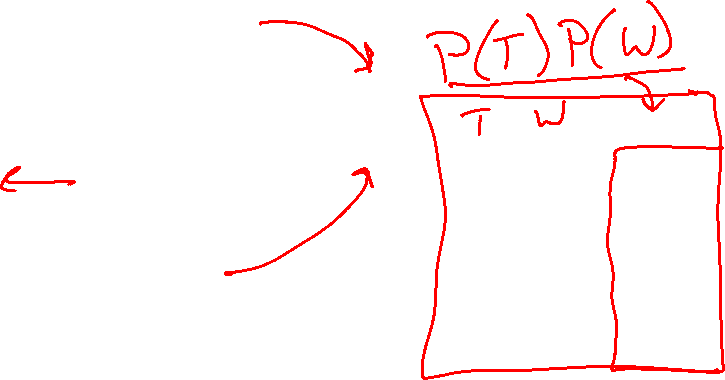 P(T) P(W)
T W